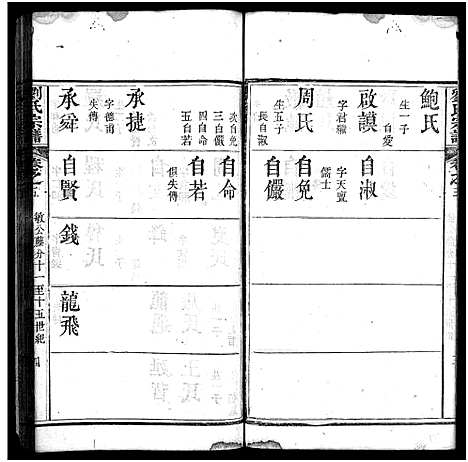 鮑氏
生一子
自愛
啟謨
字君獻
周氏
生五子
長自淑
自淑
字天寬
自免
儒士
自儼
次自免
三自儼
四自命
五自若
自命
自若
俱失傳
承捷
字德甫
失傳
承舜
自賢
錢
龍飛
劉氏宗譜
卷之五
敏公藤分十一至十五世紀